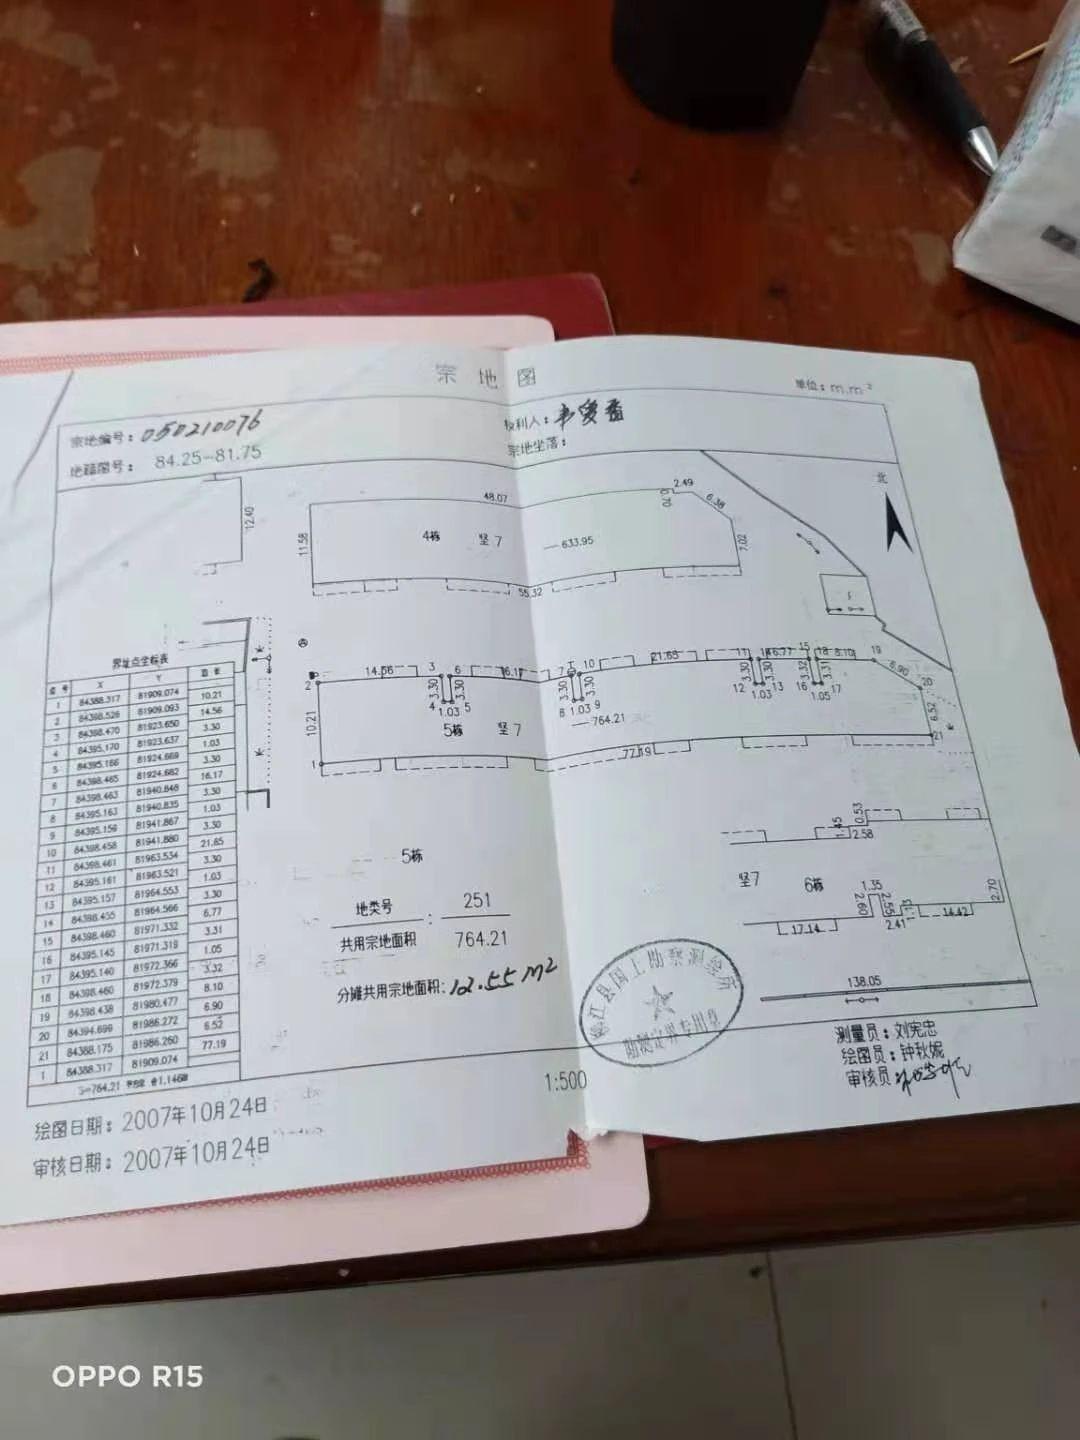 宗地图
单位：m.m²
宗地编号：050210076
权利人：韦爱香
地籍图号：84.25-81.75
宗地坐落：
北
12.40
48.07
2.49
0.70
6.38
11.58
4栋 坚7
633.95
7.02
55.32
14.56 3 6 16.17 7 10 21.65 11 14 6.77 15 18 8.10 19
2
3.30 3.30 3.30 3.30 3.30 3.30 3.32 3.31
6.90
20
4 1.03 5
8 1.03 9
12 1.03 13
16 1.05 17
10.21
5栋 坚7
764.21
6.52
21
1
77.19
界址点坐标表
点号 X Y 边长
1 84388.317 81909.074
10.21
2 84398.526 81909.093
14.56
3 84398.470 81923.650
3.30
4 84395.170 81923.637
1.03
5 84395.166 81924.669
3.30
6 84398.465 81924.682
16.17
7 84398.463 81940.848
3.30
8 84395.163 81940.835
1.03
9 84395.159 81941.867
3.30
10 84398.458 81941.880
21.65
11 84398.461 81963.534
3.30
12 84395.161 81963.521
1.03
13 84395.157 81964.553
3.30
14 84398.455 81964.566
6.77
15 84398.460 81971.332
3.31
16 84395.145 81971.319
1.05
17 84395.140 81972.366
3.32
18 84398.460 81972.379
8.10
19 84398.438 81980.477
6.90
20 84394.699 81986.272
6.52
21 84388.175 81986.260
77.19
1 84388.317 81909.074
S=764.21 平方米 合1.146亩
5栋
地类号：251
共用宗地面积 764.21
分摊共用宗地面积：12.55m²
0.53
1.45
2.58
坚7 6栋
1.35
2.60
2.55
2.41
1.13
14.42
2.70
17.14
138.05
江县国土勘察测绘所
勘测定界专用章
1:500
测量员：刘宪忠
绘图员：钟秋妮
审核员：
绘图日期：2007年10月24日
审核日期：2007年10月24日
OPPO R15